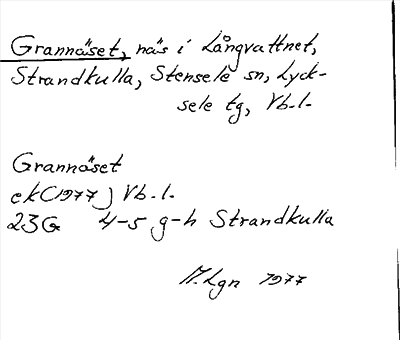 Grannäset, näs i Långvattnet,
Strandkulla, Stensele sn, Lyck-
sele tg, Vb.l.
Grannäset
ek (1977) Vb.l.
23G 4-5 g-h Strandkulla
M.Lgn 1977